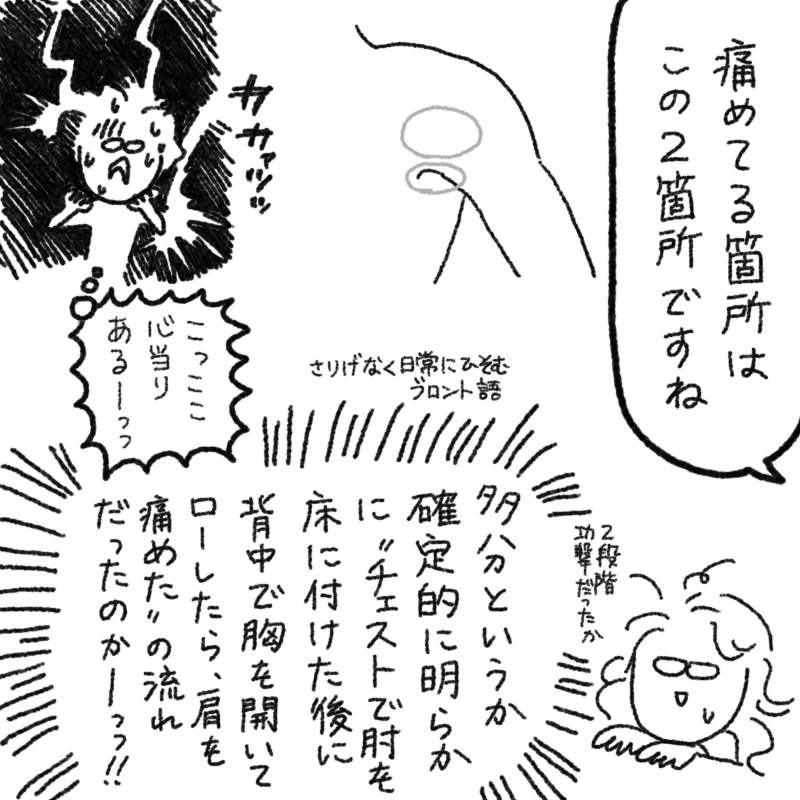 痛めてる箇所は
この2箇所ですね
カカァッッ
こっここ
心当り
あるーっっ
さりげなく日常にひそむ
ブロント語
多分というか
確定的に明らか
に"チェストで肘を
床に付けた後に
背中で胸を開いて
ローしたら、肩を
痛めた"の流れ
だったのかーっっ!!
2段階
攻撃だったか